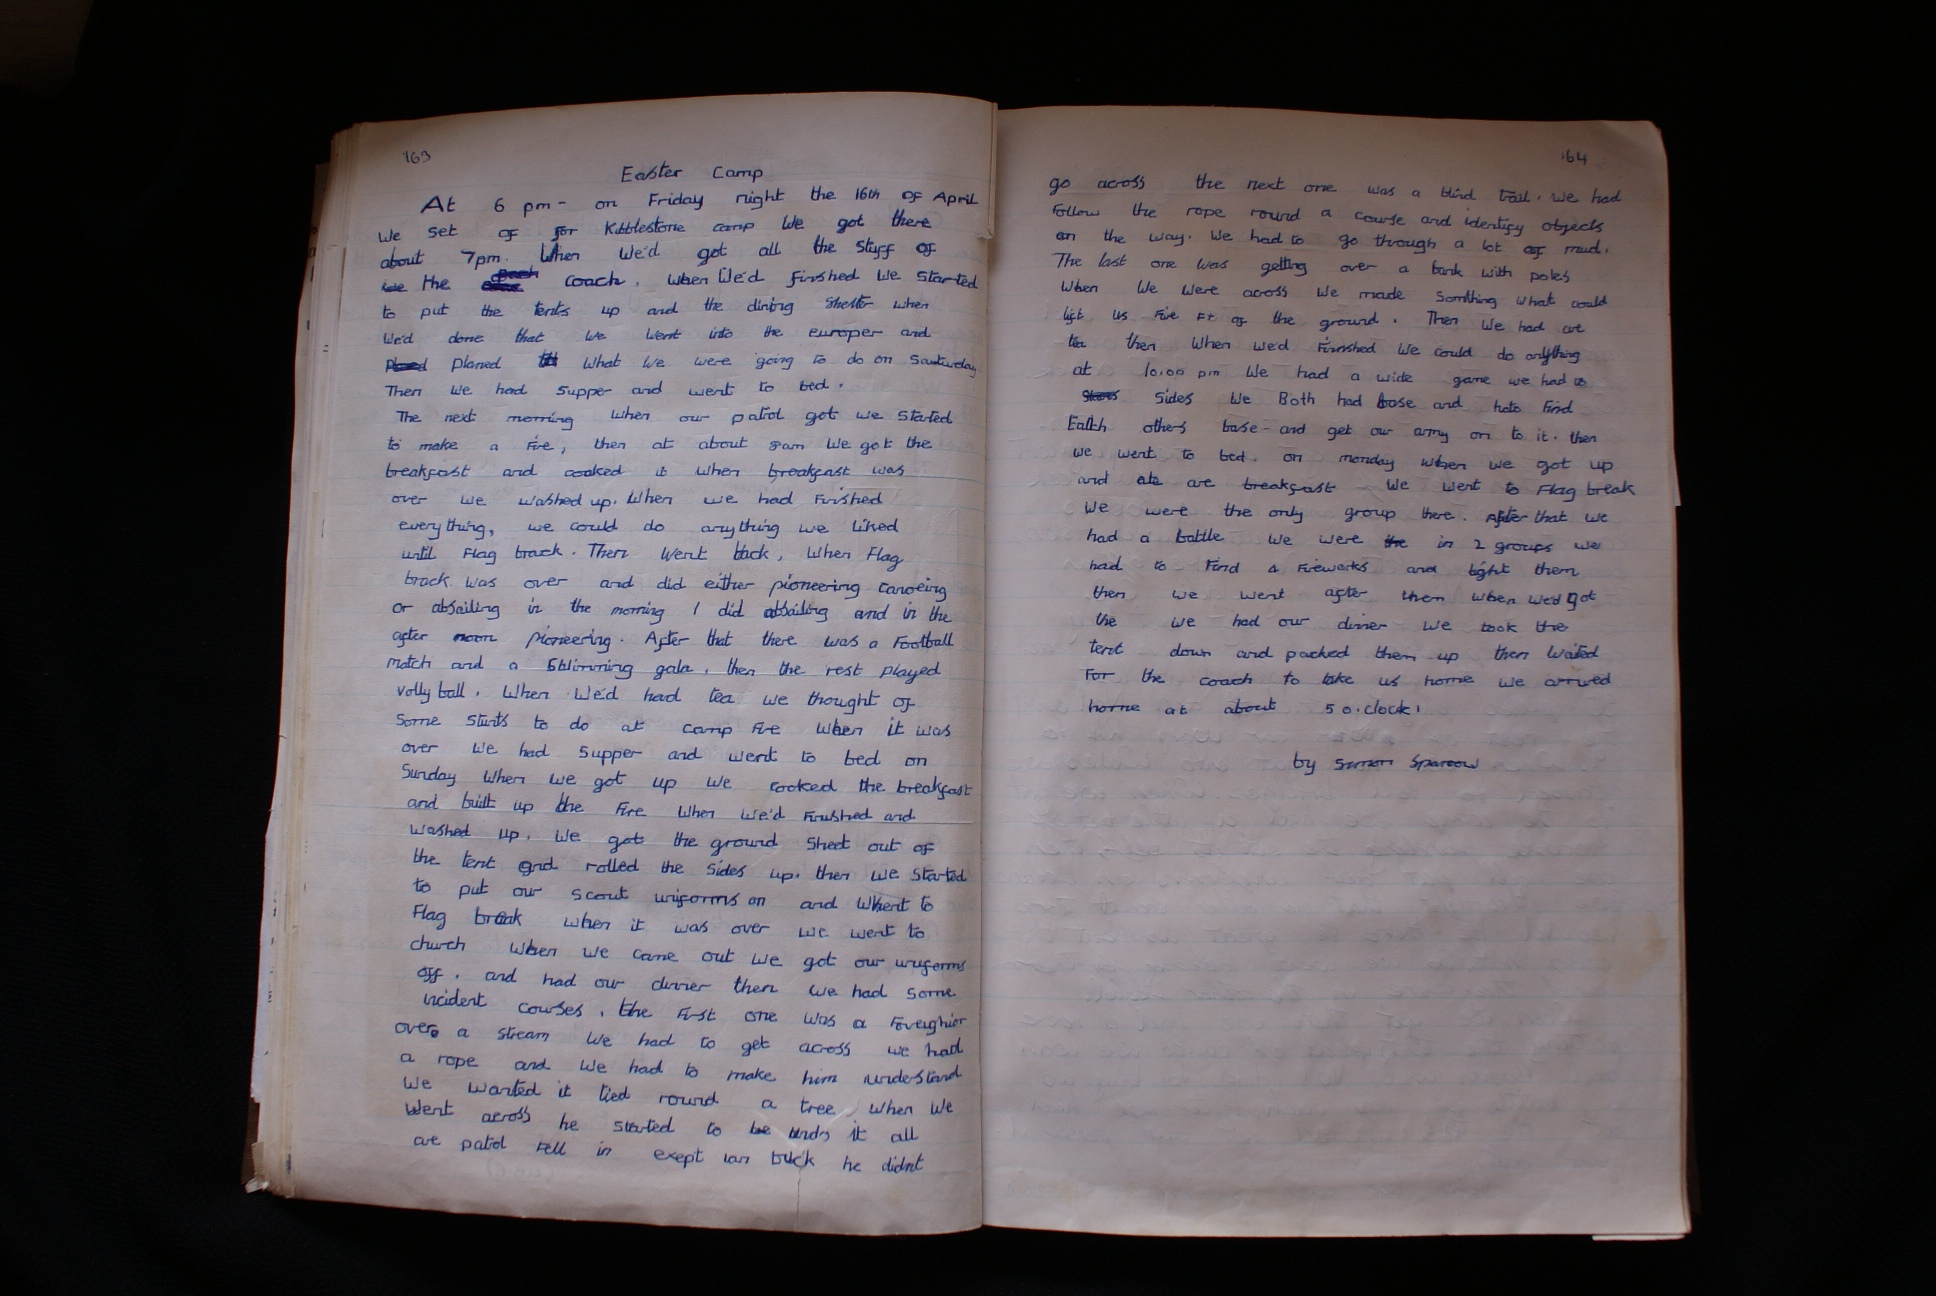 163
Easter Camp
At 6 pm - on Friday night the 16th of April
We set of for Kibblestone camp We got there
about 7pm. When We'd got all the stuff of
the coach, when We'd finished We started
to put the tents up and the dining Shelter when
We'd done that We Went into the europer and
planed What We were going to do on Sauturday
Then We had Supper and went to bed.
The next morning When our patrol got we started
to make a Fire, then at about 8am We got the
breakfast and cooked it When breakfast was
over We washed up. When we had Finished
everything, we could do anything we liked
until Flag brack. Then Went back, When Flag
brack was over and did either pioneering canoeing
or absailing in the morning I did absailing and in the
after noon pioneering. After that there was a Football
match and a Swimming gala, then the rest played
volly ball. When We'd had tea we thought of
Some Stunts to do at camp Fire When it was
over We had Supper and went to bed on
Sunday When we got up We cooked the breakfast
and built up the Fire When We'd Finished and
Washed up. We got the ground Sheet out of
the tent and rolled the Sides up. then We Started
to put our Scout uniforms on and Went to
Flag break When it was over we went to
church When we came out We got our uniforms
off. and had our dinner then We had Some
incident courses, the First one Was a Foreighior
over a stream We had to get across we had
a rope and We had to make him understand
We wanted it tied round a tree When We
Went across he started to undo it all
are patrol Fell in exept ian buck he didnt
164
go across the next one was a blind trail. We had
Follow the rope round a course and identify objects
on the way. We had to go through a lot of mud.
The last one was getting over a bank with poles
When We Were across We made Somthing What could
lift us Five Ft of the ground. Then We had are
tea then When We'd Finnished We could do anything
at 10.00 pm We had a wide game we had to
Sides We Both had base and hato Find
Eatch others base - and get our army on to it. then
we went to bed. on monday When we got up
and ate are breakfast We Went to Flag break
We were the only group there. After that We
had a battle We were in 2 groups we
had to Find 4 Fireworks and light them
then We went after them When We'd got
the We had our dinner We took the
tent down and packed them up then Waited
For the coach to take us home we arrived
home at about 5 o.clock.
by Simon Sparrow